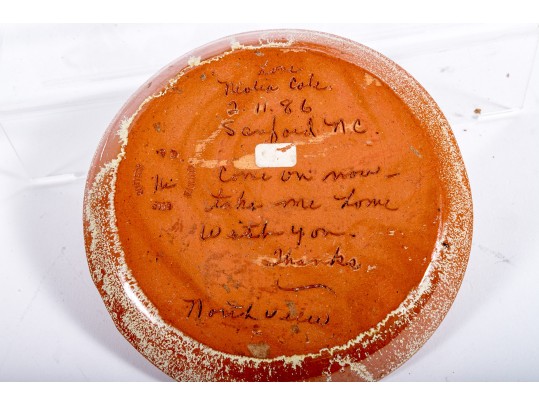 Love
Neolia Cole
2-11-86
Sanford NC.
Come on now-
take me home
with you.
Thanks
North